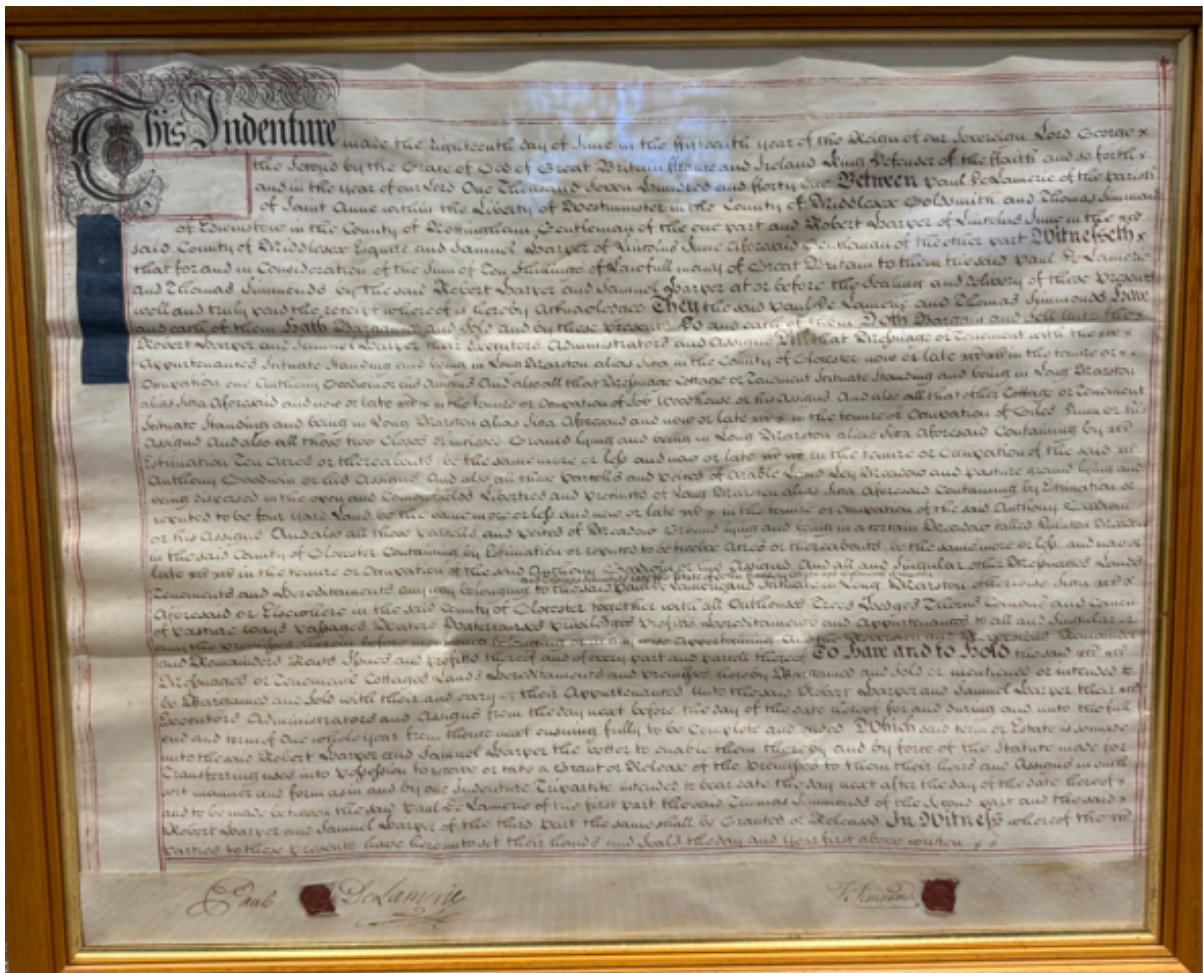 This Indenture made the Eighteenth day of June in the fifteenth year of the Reign of our Sovereign Lord George x
the Second by the Grace of God of Great Britain France and Ireland King Defender of the Faith and so forth x
and in the year of our Lord One Thousand Seven Hundred and fforty Between Paul De Lamerie of the Parish
of Saint Anne within the Liberty of Westminster in the County of Middlesex Goldsmith and Thomas Simmonds
of Edwinstow in the County of Nottingham Gentleman of the one part and Robert Harper of Lincolns Inne in the
said County of Middlesex Esquire and Samuel Harper of Lincolns Inne aforesaid Gentleman of the other part Witnesseth x
that for and in Consideration of the Sum of Ten Shillings of Lawfull money of Great Britain to them the said Paul De Lamerie
and Thomas Simmonds by the said Robert Harper and Samuel Harper at or before the Sealing and Delivery of these Presents
well and truly paid the receipt whereof is hereby Acknowledged They the said Paul De Lamerie and Thomas Simmonds Have
and each of them Hath Bargained and Sold and by these Presents Do and each of them Doth Bargain and Sell unto the
Robert Harper and Samuel Harper their Executors Administrators and Assigns All that Messuage or Tenement with the
Appurtenances Scituate Standing and being in Long Marston alias Sicca in the County of Glocester now or late in the tenure or
Occupation one Anthony Goodwin or his Assigns And also all that Messuage Cottage or Tenement Scituate Standing and being in Long Marston
alias Sicca Aforesaid and now or late in the tenure or Occupation of Job Woodhouse or his Assigns And also all that other Cottage or Tenement
Scituate Standing and being in Long Marston alias Sicca Aforesaid and now or late in the tenure or Occupation of Giles or his
Assigns And also all those two Closes or inclosed Grounds lying and being in Long Marston alias Sicca Aforesaid Containing by
Estimation Ten Acres or thereabouts be the same more or less and now or late in the tenure or Occupation of the said
Anthony Goodwin or his Assigns And also all those Parcells and peices of Arable Land Ley Meadow and Pasture ground lying and
being dispersed in the open and Common fields Liberties and precincts of Long Marston alias Sicca Aforesaid Containing by Estimation or
reputed to be four Yard Land be the same more or less and now or late in the tenure or Occupation of the said Anthony Goodwin
or his Assigns And also all those Parcells and peices of Meadow Ground lying and being in a certain Meadow called Meadow
in the said County of Glocester Containing by Estimation or reputed to be twelve Acres or thereabouts be the same more or less and now or
late in the tenure or Occupation of the said Anthony Goodwin or his Assigns And all and Singular other Messuages Lands
Tenements and Hereditaments any way belonging to the said Paul De Lamerie and Scituate in Long Marston otherwise Sicca
Aforesaid or Elsewhere in the said County of Glocester together with all Outhouses Trees Hedges Thorns Comons and Comon
of Pasture Ways Passages Waters Watercourses Priviledges Profits Hereditaments and Appurtenances to all and Singular
the Premisses herein before mentioned belonging or in any wise Appertaining And the Reversion and Reversions Remainder
and Remainders Rents Issues and profitts thereof and of every part and parcell thereof To Have and to Hold the said
Messuages or Tenements Cottages Lands Hereditaments and Premisses hereby Bargained and Sold or mentioned or intended to
be Bargained and Sold with their and every of their Appurtenances Unto the said Robert Harper and Samuel Harper their
Executors Administrators and Assigns from the day next before the day of the date hereof for and during and unto the full
end and term of One whole year from thence next ensuing fully to be Complete and ended Which said term or Estate is so made
unto the said Robert Harper and Samuel Harper the better to enable them thereby and by force of the Statute made for
Transferring uses into Possession to receive or take a Grant or Release of the Premisses to them their heirs and Assigns in such
sort manner and form as in and by one Indenture Tripartite intended to bear date the day next after the day of the date hereof x
and to be made between the said Paul De Lamerie of the first part the said Thomas Simmonds of the Second part and the said x
Robert Harper and Samuel Harper of the third Part the same shall be Granted or Released In Witness whereof the
parties to these presents have hereunto set their hands and Seals the day and year first above written x x
Paul De Lamerie
T. Simmonds